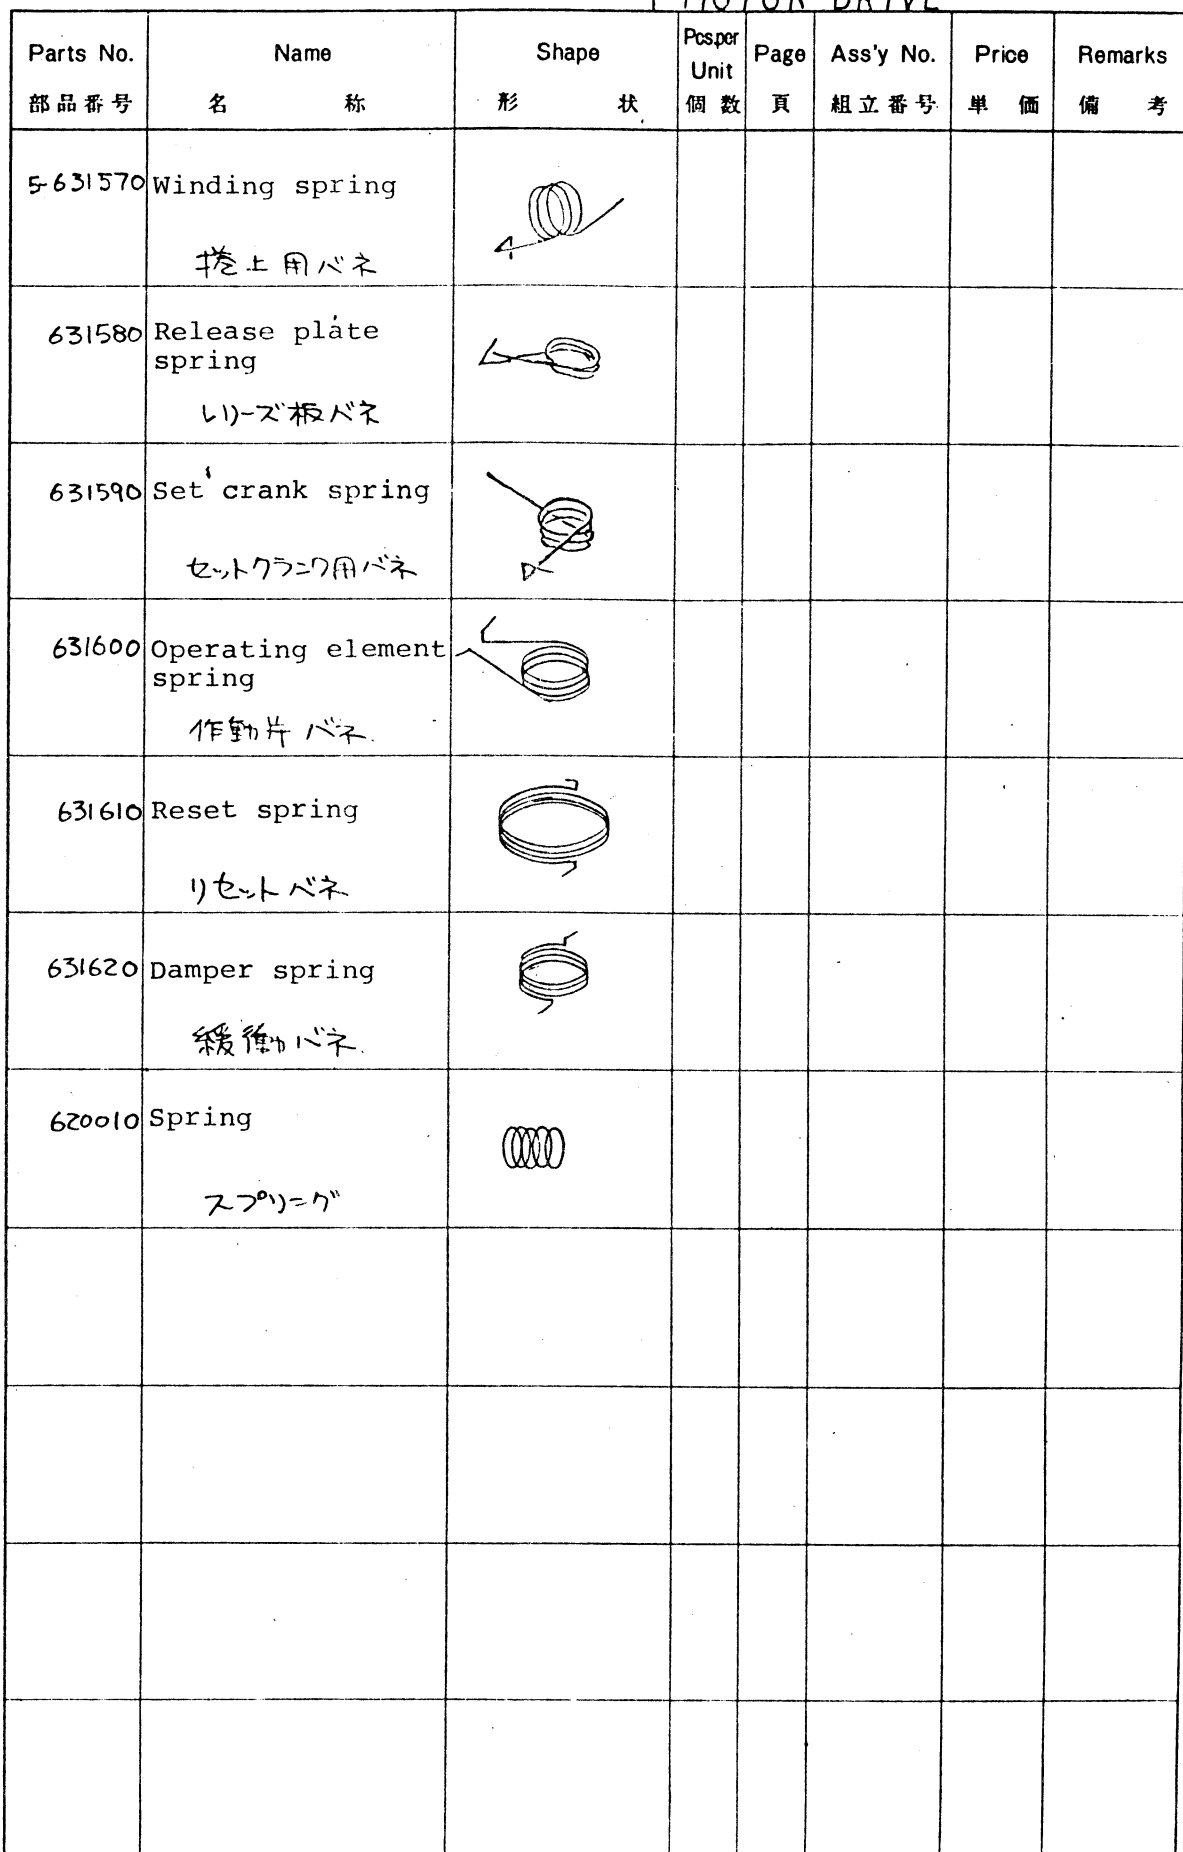 MOTOR DRIVE
Parts No. Name Shape Pcs.per Unit Page Ass'y No. Price Remarks
部品番号 名 称 形 状 個数 頁 組立番号 単価 備考
5-631570 Winding spring
捲上用バネ
631580 Release plate
spring
レリーズ板バネ
631590 Set crank spring
セットクランク用バネ
631600 Operating element
spring
作動片バネ
631610 Reset spring
リセットバネ
631620 Damper spring
緩衝バネ
620010 Spring
スプリング